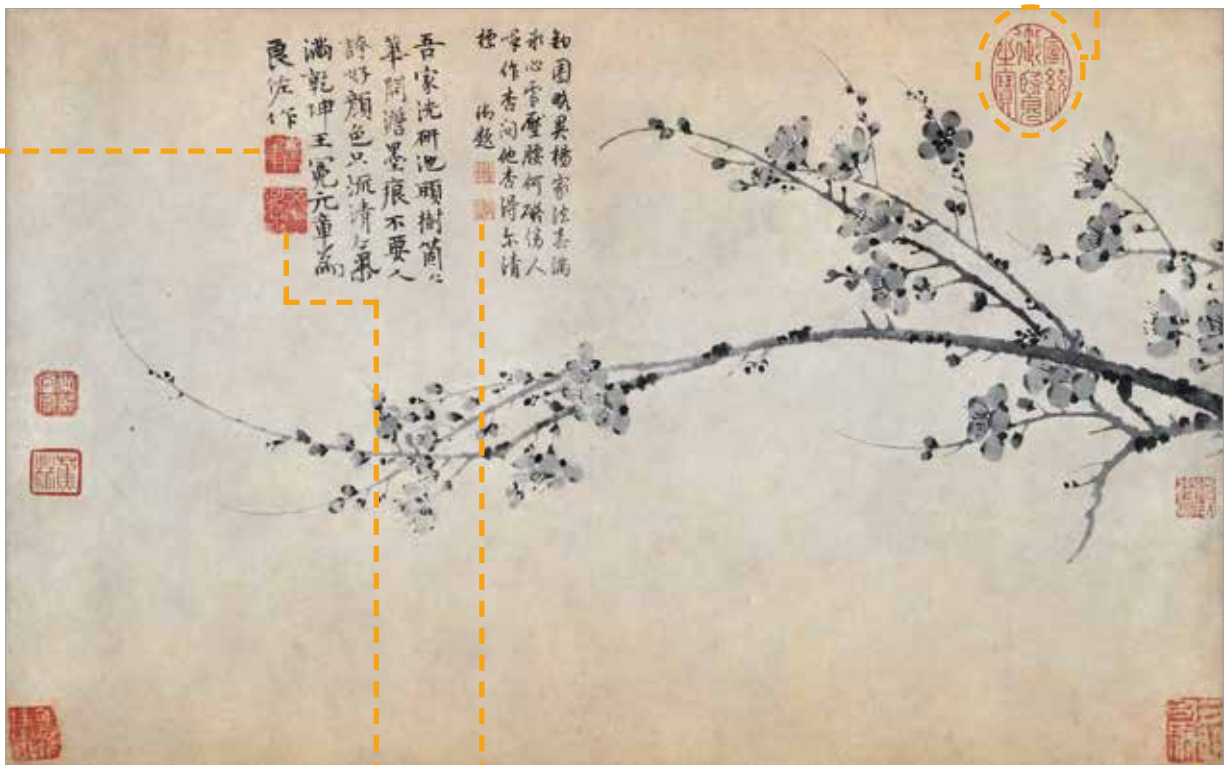 鈎圈略異楊家法春滿
冰心雪壓腰何礙傷人
喚作杏問他杏得尔清
標 御題
吾家洗研池頭樹箇〻
華開澹墨痕不要人
誇好顏色只流清氣
滿乾坤王冕元章為
良佐作
宣統
御覽
之寶
蕉林